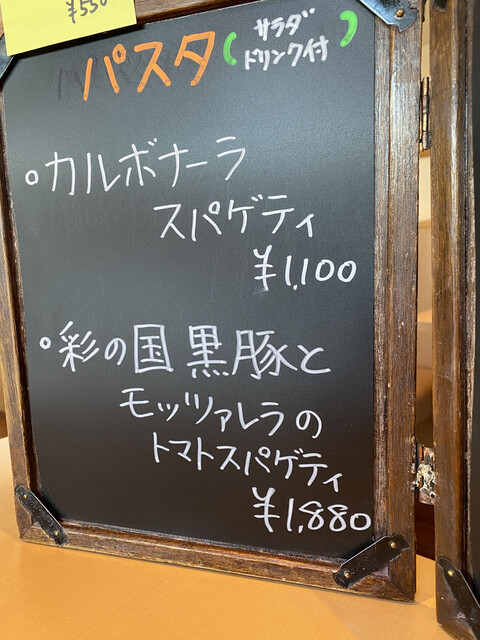 ¥550
パスタ(サラダ
ドリンク付)
・カルボナーラ
スパゲティ
¥1,100
・彩の国 黒豚と
モッツァレラの
トマトスパゲティ
¥1,880